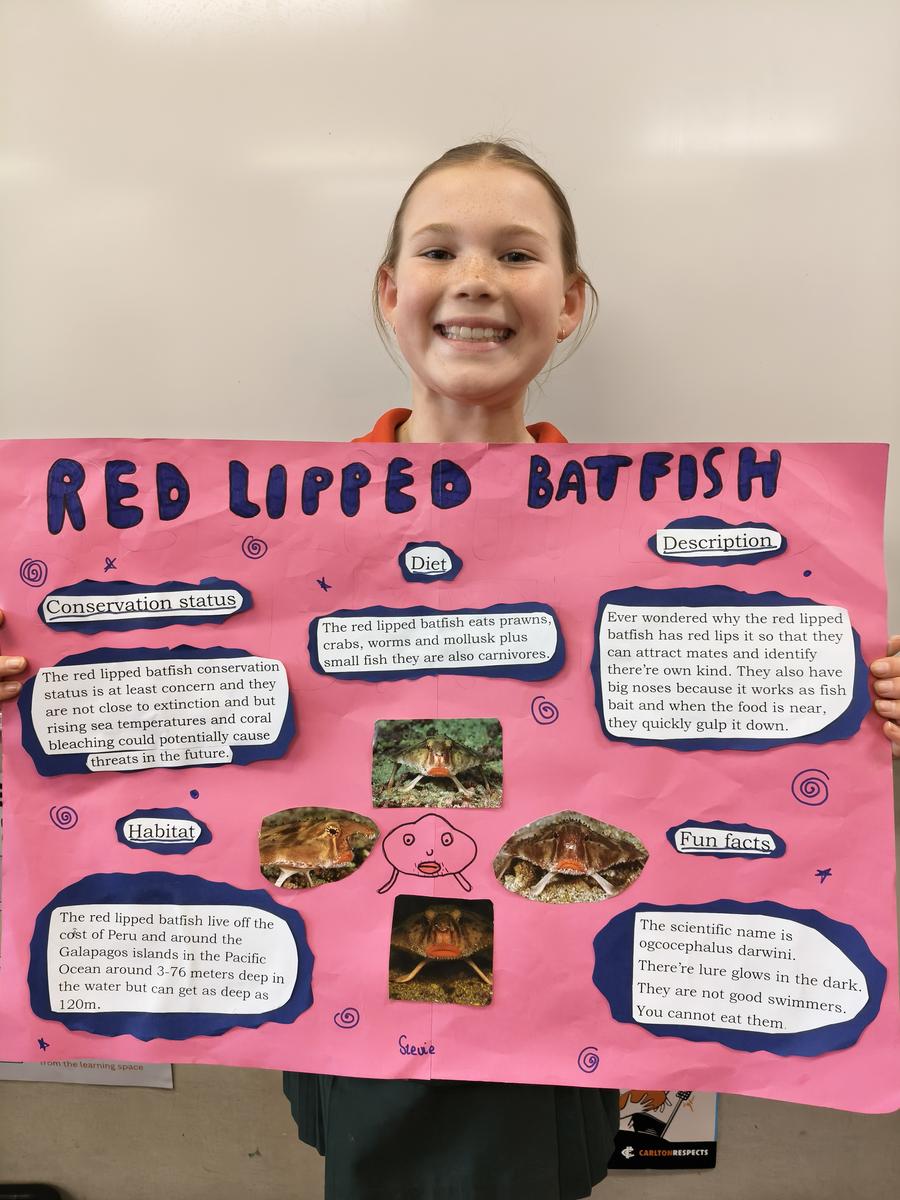 RED LIPPED BATFISH
Conservation status
The red lipped batfish conservation
status is at least concern and they
are not close to extinction and but
rising sea temperatures and coral
bleaching could potentially cause
threats in the future.
Diet
The red lipped batfish eats prawns,
crabs, worms and mollusk plus
small fish they are also carnivores.
Description
Ever wondered why the red lipped
batfish has red lips it so that they
can attract mates and identify
there're own kind. They also have
big noses because it works as fish
bait and when the food is near,
they quickly gulp it down.
Habitat
The red lipped batfish live off the
cost of Peru and around the
Galapagos islands in the Pacific
Ocean around 3-76 meters deep in
the water but can get as deep as
120m.
Fun facts
The scientific name is
ogcocephalus darwini.
There're lure glows in the dark.
They are not good swimmers.
You cannot eat them.
Stevie
from the learning space
CARLTONRESPECTS